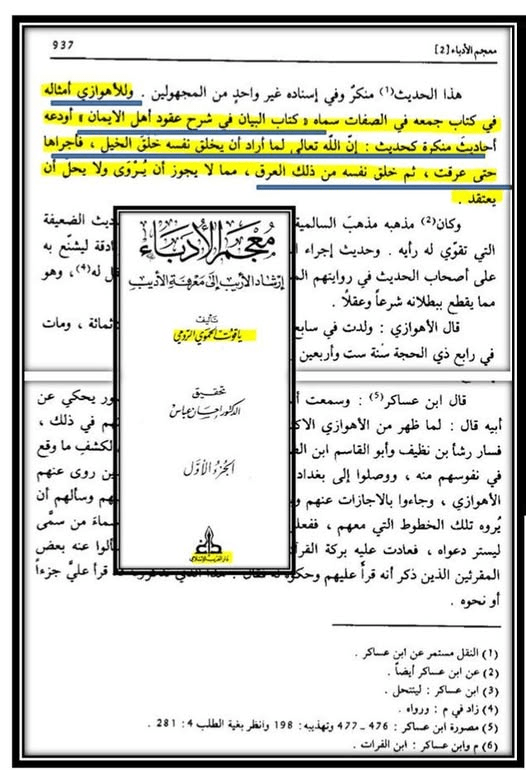 937
معجم الأدباء [2]
هذا الحديث(1) منكرٌ وفي إسناده غير واحدٍ من المجهولين . وللأهوازي أمثاله
في كتاب جمعه في الصفات سماه « كتاب البيان في شرح عقود أهل الايمان » أودعه
أحاديث منكرة كحديث : إنّ الله تعالى لما أراد أن يخلق نفسه خلق الخيل ، فأجراها
حتى عرقت ، ثم خلق نفسه من ذلك العرق ، مما لا يجوز أن يُرْوَى ولا يحلّ أن
يعتقد .
وكان(2) مذهبه مذهبَ السالمية
ديث الضعيفة
التي تقوّي له رأيه . وحديث إجراء
ادقة ليشنّع به
على أصحاب الحديث في روايتهم
له(4) ، وهو
مما يقطع ببطلانه شرعاً وعقلًا .
قال الأهوازي : ولدت في سابع
ثمائة ، ومات
في رابع ذي الحجة سنة ست وأربعين
مُعجَم الأدباء
إرشاد الأريب إلى معرفة الأديب
تأليف
ياقوت الحموي الرومي
تحقيق
الدكتور إحسان عباس
الجزء الأول
دار الغرب الإسلامي
قال ابن عساكر(5) : وسمعت
ور يحكي عن
أبيه قال : لما ظهر من الأهوازي
هم في ذلك ،
فسار رشأ بن نظيف وأبو القاسم ابن
لكشف ما وقع
في نفوسهم منه ، ووصلوا إلى بغداد
ين روى عنهم
الأهوازي ، وجاءوا بالاجازات عنهم
هم وسألهم أن
يُروه تلك الخطوط التي معهم ، ففعل
سماءَ من سمَّى
ليستر دعواه ، فعادت عليه بركة القرآ
ألوا عنه بعض
المقرئين الذين ذكر أنه قرأ عليهم وحكوه له
قرأ عليّ جزءاً
أو نحوه .
(1) النقل مستمر عن ابن عساكر .
(2) عن ابن عساكر أيضاً .
(3) ابن عساكر : لينتحل .
(4) زاد في م : ورواه .
(5) مصورة ابن عساكر : 476 ـ 477 وتهذيبه: 198 وانظر بغية الطلب 4 : 281 .
(6) م وابن عساكر : ابن الفرات .